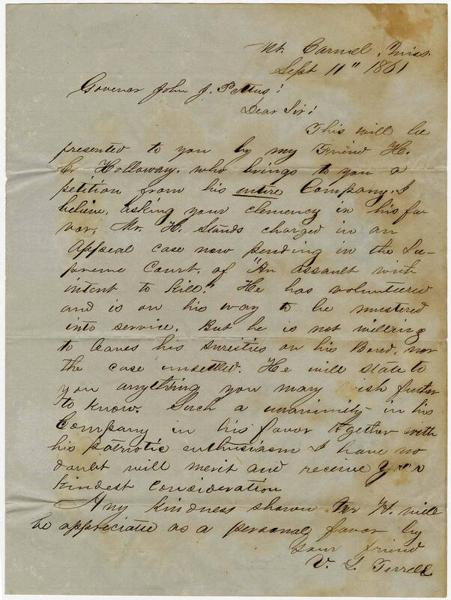 Mt. Carmel, Miss.
Sept 11" 1861
Govenor John J. Pettus!
Dear Sir!
This will be
presented to you by my Friend H.
C. Holloway, who brings to you a
petition from his entire Company, I
believe, asking your clemency in his fa-
vor, Mr. H. Stands charged in an
Appeal case now pending in the Su-
preme Court, of "An assault with
intent to Kill." He has volunteered
and is on his way to be mustered
into service. But he is not willing
to leave his sureties on his Bond, nor
the case unsettled. He will state to
you anything you may wish further
to know. Such a unanimity in his
Company in his favor together with
his patriotic enthusiasm I have no
doubt will merit and receive your
kindest consideration
Any kindness shown Mr H will
be appreciated as a personal favor by
your friend
V. L. Terrell